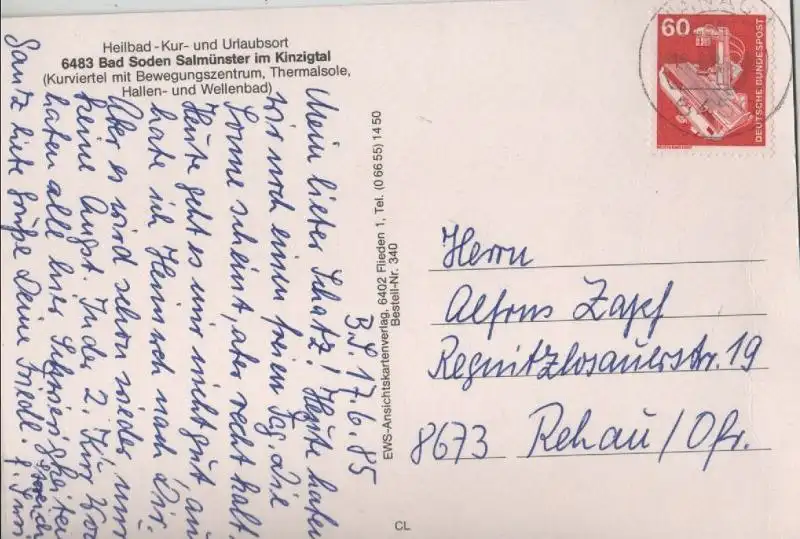 Heilbad - Kur- und Urlaubsort
6483 Bad Soden Salmünster im Kinzigtal
(Kurviertel mit Bewegungszentrum, Thermalsole,
Hallen- und Wellenbad)
B. S. 17.6.85
Mein lieber Schatz! Heute haben
wir noch einen freien Tag, die
Sonne scheint, aber recht kalt.
Heute geht es mir nicht gut au
habe ich Heimweh nach Dir.
Aber es wird schon wieder, nur
keine Angst. In der 2. Kur Wo
haben alle hier Schwierigkeiten
Ganz liebe Grüße Deine Friedl.
EWS-Ansichtskartenverlag, 6402 Flieden 1, Tel. (0 66 55) 14 50
Bestell-Nr. 340
60
DEUTSCHE BUNDESPOST
Herrn
Alfons Zapf
Regnitzlosauerstr. 19
8673 Rehau/Ofr.
CL